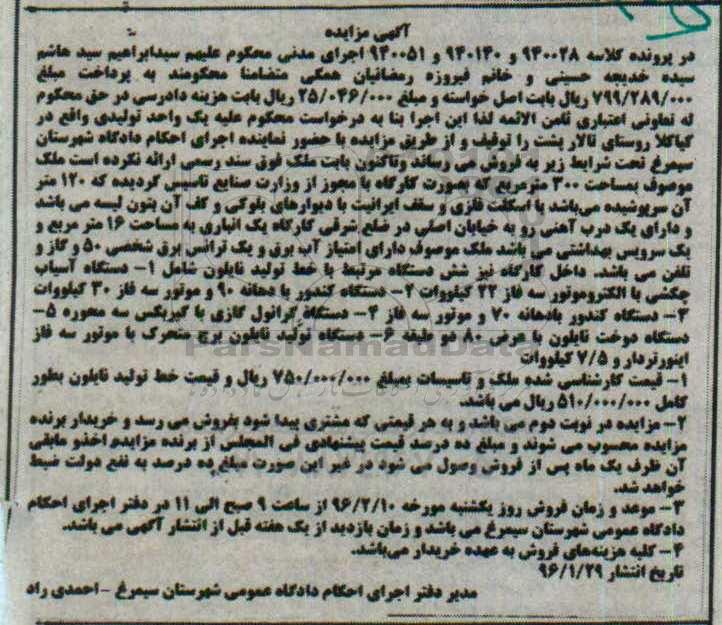 آگهی مزایده
در پرونده کلاسه ۹۴۰۰۲۸ و ۹۴۰۱۴۰ و ۹۴۰۰۵۱ اجرای مدنی محکوم علیهم سیدابراهیم سید هاشم
سیده خدیجه حسینی و خانم فیروزه رمضانیان همگی متضامنا محکومند به پرداخت مبلغ
۷۹۹/۲۸۹/۰۰۰ ریال بابت اصل خواسته و مبلغ ۲۵/۰۴۶/۰۰۰ ریال بابت هزینه دادرسی در حق محکوم
له تعاونی اعتباری ثامن الائمه لذا این اجرا بنا به درخواست محکوم علیه یک واحد تولیدی واقع در
کیاکلا روستای تالار پشت را توقیف و از طریق مزایده با حضور نماینده اجرای احکام دادگاه شهرستان
سیمرغ تحت شرایط زیر به فروش می رساند وتاکنون بابت ملک فوق سند رسمی ارائه نکرده است ملک
موصوف بمساحت ۳۰۰ مترمربع که بصورت کارگاه با مجوز از وزارت صنایع تاسیس گردیده که ۱۲۰ متر
آن سرپوشیده می‌باشد با اسکلت فلزی و سقف ایرانیت با دیوارهای بلوکی و کف آن بتون لیسه می باشد
و دارای یک درب آهنی رو به خیابان اصلی در ضلع شرقی کارگاه یک انباری به مساحت ۱۶ متر مربع و
یک سرویس بهداشتی می باشد ملک موصوف دارای امتیاز آب برق و یک ترانس برق شخصی ۵۰ و گاز و
تلفن می باشد. داخل کارگاه نیز شش دستگاه مرتبط با خط تولید نایلون شامل ۱- دستگاه آسیاب
چکشی با الکتروموتور سه فاز ۲۲ کیلووات ۲- دستگاه کندور با دهانه ۹۰ و موتور سه فاز ۳۰ کیلووات
۳- دستگاه کندور بادهانه ۷۰ و موتور سه فاز ۴- دستگاه گرانول گازی با گیربکس سه محوره ۵-
دستگاه دوخت نایلون با عرض ۸۰ دو طبقه ۶- دستگاه تولید نایلون برج متحرک با موتور سه فاز
اینورتردار و ۷/۵ کیلووات
۱- قیمت کارشناسی شده ملک و تاسیسات بمبلغ ۷۵۰/۰۰۰/۰۰۰ ریال و قیمت خط تولید نایلون بطور
کامل ۵۱۰/۰۰۰/۰۰۰ ریال می باشد.
۲- مزایده در نوبت دوم می باشد و به هر قیمتی که مشتری پیدا شود بفروش می رسد و خریدار برنده
مزایده محسوب می شوند و مبلغ ده درصد قیمت پیشنهادی فی المجلس از برنده مزایده اخذو مابقی
آن ظرف یک ماه پس از فروش وصول می شود در غیر این صورت مبلغ ده درصد به نفع دولت ضبط
خواهد شد.
۳- موعد و زمان فروش روز یکشنبه مورخه ۹۶/۲/۱۰ از ساعت ۹ صبح الی ۱۱ در دفتر اجرای احکام
دادگاه عمومی شهرستان سیمرغ می باشد و زمان بازدید از یک هفته قبل از انتشار آگهی می باشد.
۴- کلیه هزینه‌های فروش به عهده خریدار می‌باشد.
تاریخ انتشار ۹۶/۱/۲۹
مدیر دفتر اجرای احکام دادگاه عمومی شهرستان سیمرغ - احمدی راد
ParsNamadData